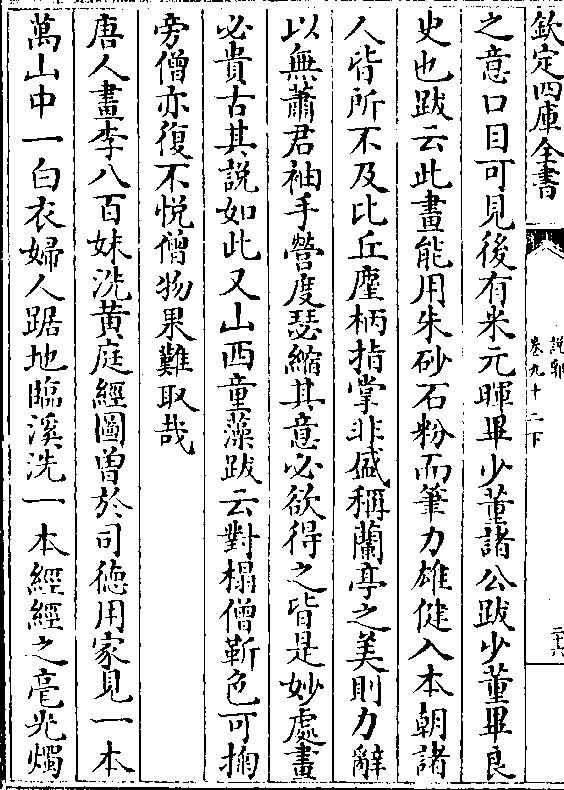 欽定四庫全書
說郛
卷九十二下
二十六
之意口目可見後有米元暉畢少董諸公跋少董畢良
史也跋云此畫能用朱砂石粉而筆力雄健入本朝諸
人皆所不及比丘麈柄指掌非盛稱蘭亭之美則力辭
以無蕭君袖手營度瑟縮其意必欲得之皆是妙處畫
必貴古其說如此又山西童藻跋云對榻僧靳色可掬
旁僧亦復不悅僧物果難取哉
唐人畫李八百妹洗黃庭經圖曾於司徳用家見一本
萬山中一白衣婦人踞地臨溪洗一本經經之毫光燭